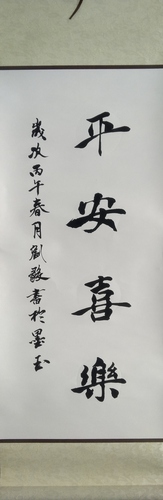 平安喜樂
歲次丙午春月劉毅書於墨玉